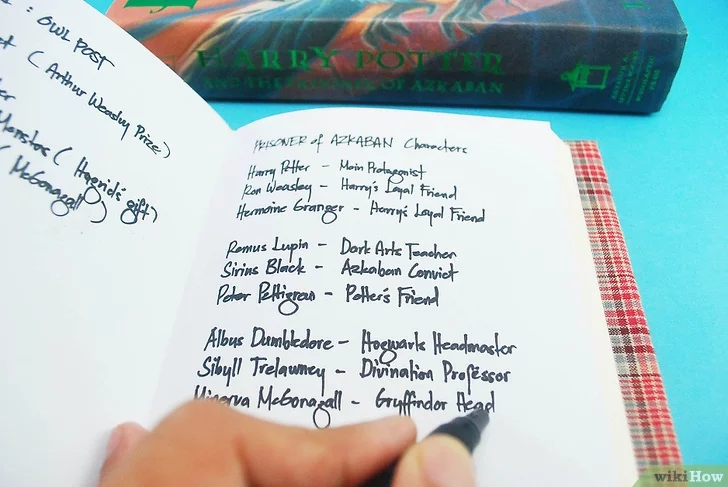 : OWL POST
( Arthur Weasley Prize)
( Hagrid's gift)
( McGonagall )
HARRY POTTER
AND THE PRISONER OF AZKABAN
PRISONER of AZKABAN Characters
Harry Potter – Main Protagonist
Ron Weasley – Harry's Loyal Friend
Hermoine Granger – Harry's Loyal Friend
Remus Lupin – Dark Arts Teacher
Sirius Black – Azkaban Convict
Peter Pettigrew – Potter's Friend
Albus Dumbledore – Hogwarts Headmaster
Sibyll Trelawney – Divination Professor
Minerva McGonagall – Gryffindor Head
wikiHow